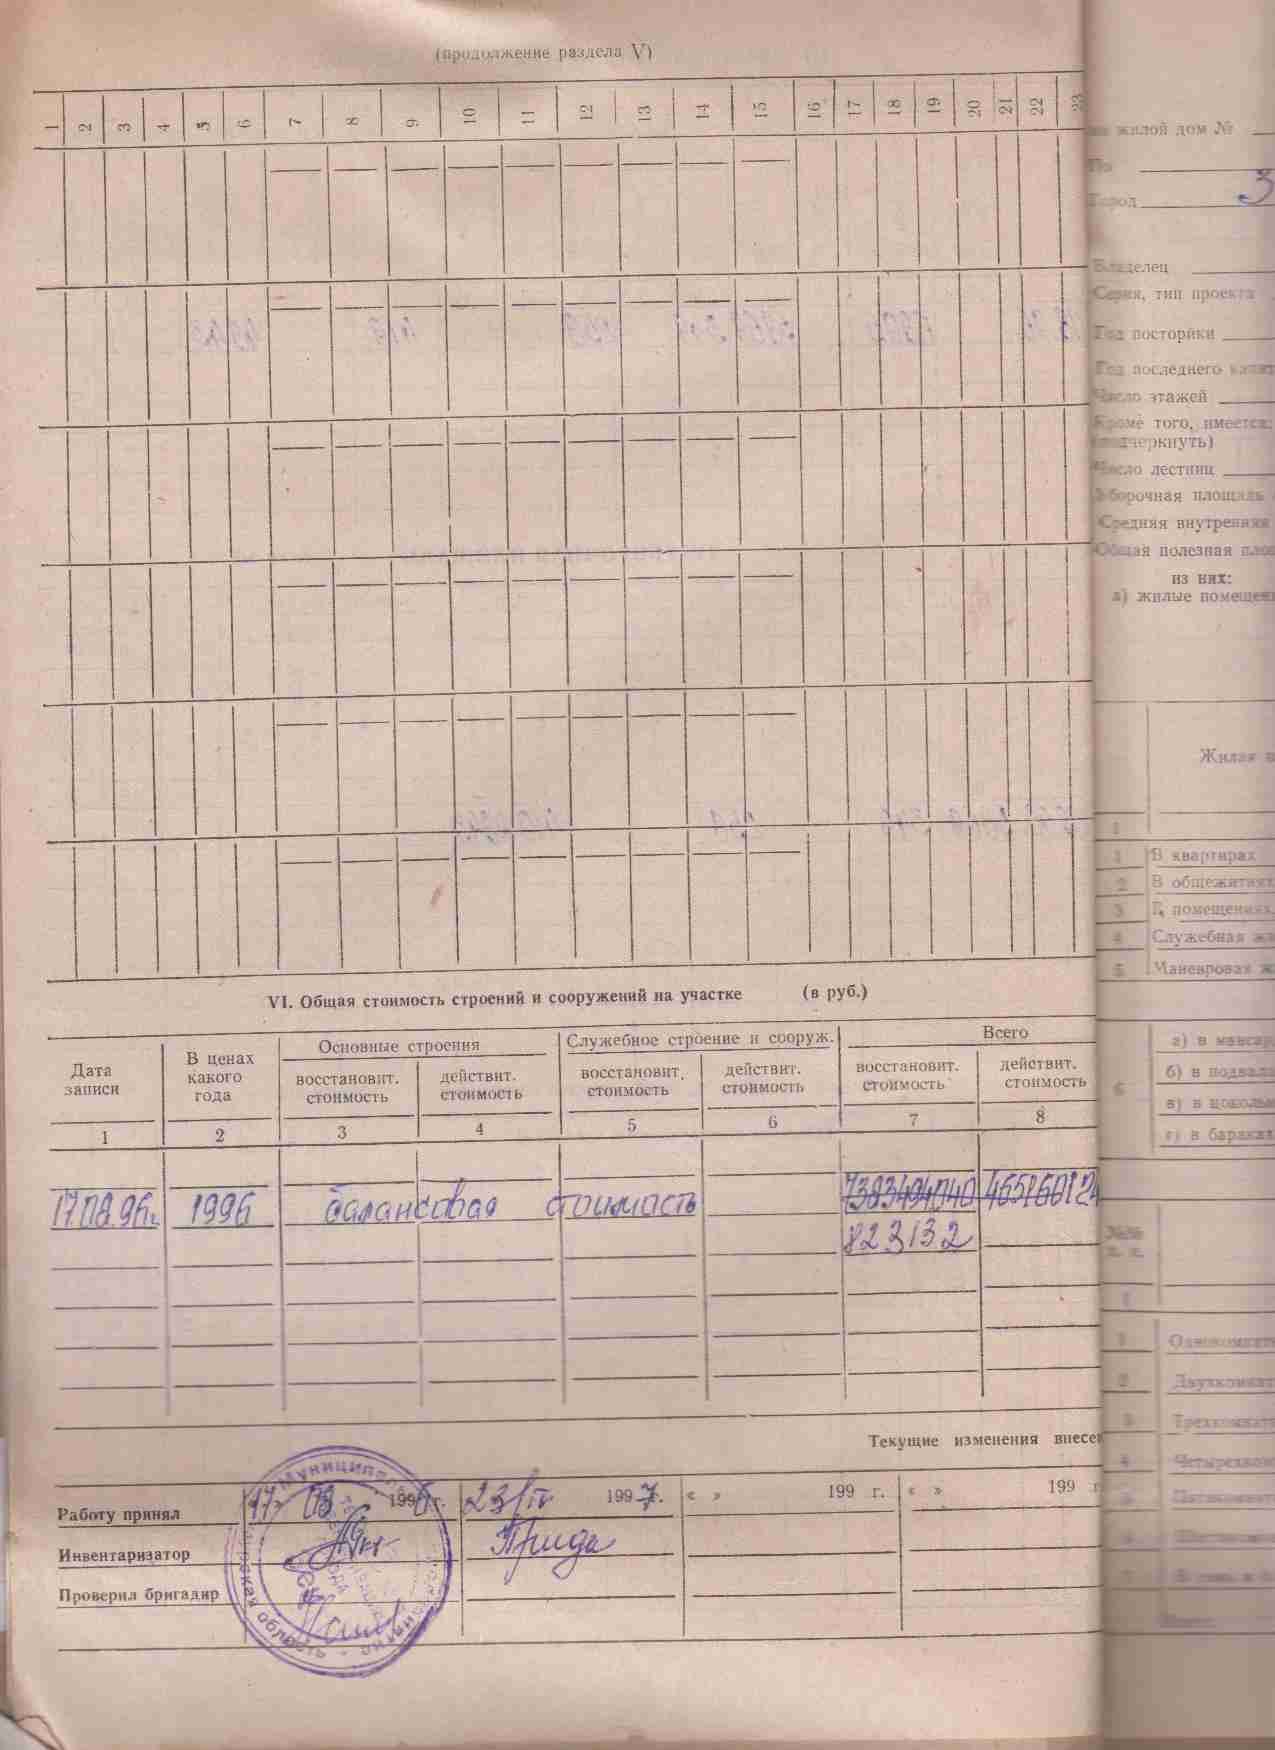 (продолжение раздела V)
1 2 3 4 5 6 7 8 9 10 11 12 13 14 15 16 17 18 19 20 21 22 23
VI. Общая стоимость строений и сооружений на участке (в руб.)
Дата записи
В ценах какого года
Основные строения
Служебное строение и сооруж.
Всего
восстановит. стоимость
действит. стоимость
восстановит. стоимость
действит. стоимость
восстановит. стоимость
действит. стоимость
1 2 3 4 5 6 7 8
17.08.96г. 1996 балансовая стоимость 7383494040
823132
Текущие изменения внесе
Работу принял 17 08 1996 г. 23/IV 1997 г. « » 199 г. « » 199 г
Инвентаризатор
Проверил бригадир
Муниципал
область
жилой дом №
По
Город
Владелец
Серия, тип проекта
Год посторйки
Год последнего капит
Число этажей
Кроме того, имеется:
(подчеркнуть)
Число лестниц
Уборочная площадь
Средняя внутренняя
Общая полезная площ
из них:
а) жилые помещен
Жилая п
1
1 В квартирах
2 В общежитиях
3 В помещениях
4 Служебная жи
5 Маневровая ж
6
а) в мансар
б) в подвала
в) в цоколь
г) в бараках
№№ п. п.
1
1 Однокомнатн
2 Двухкомнат
3 Трехкомнатн
4 Четырехком